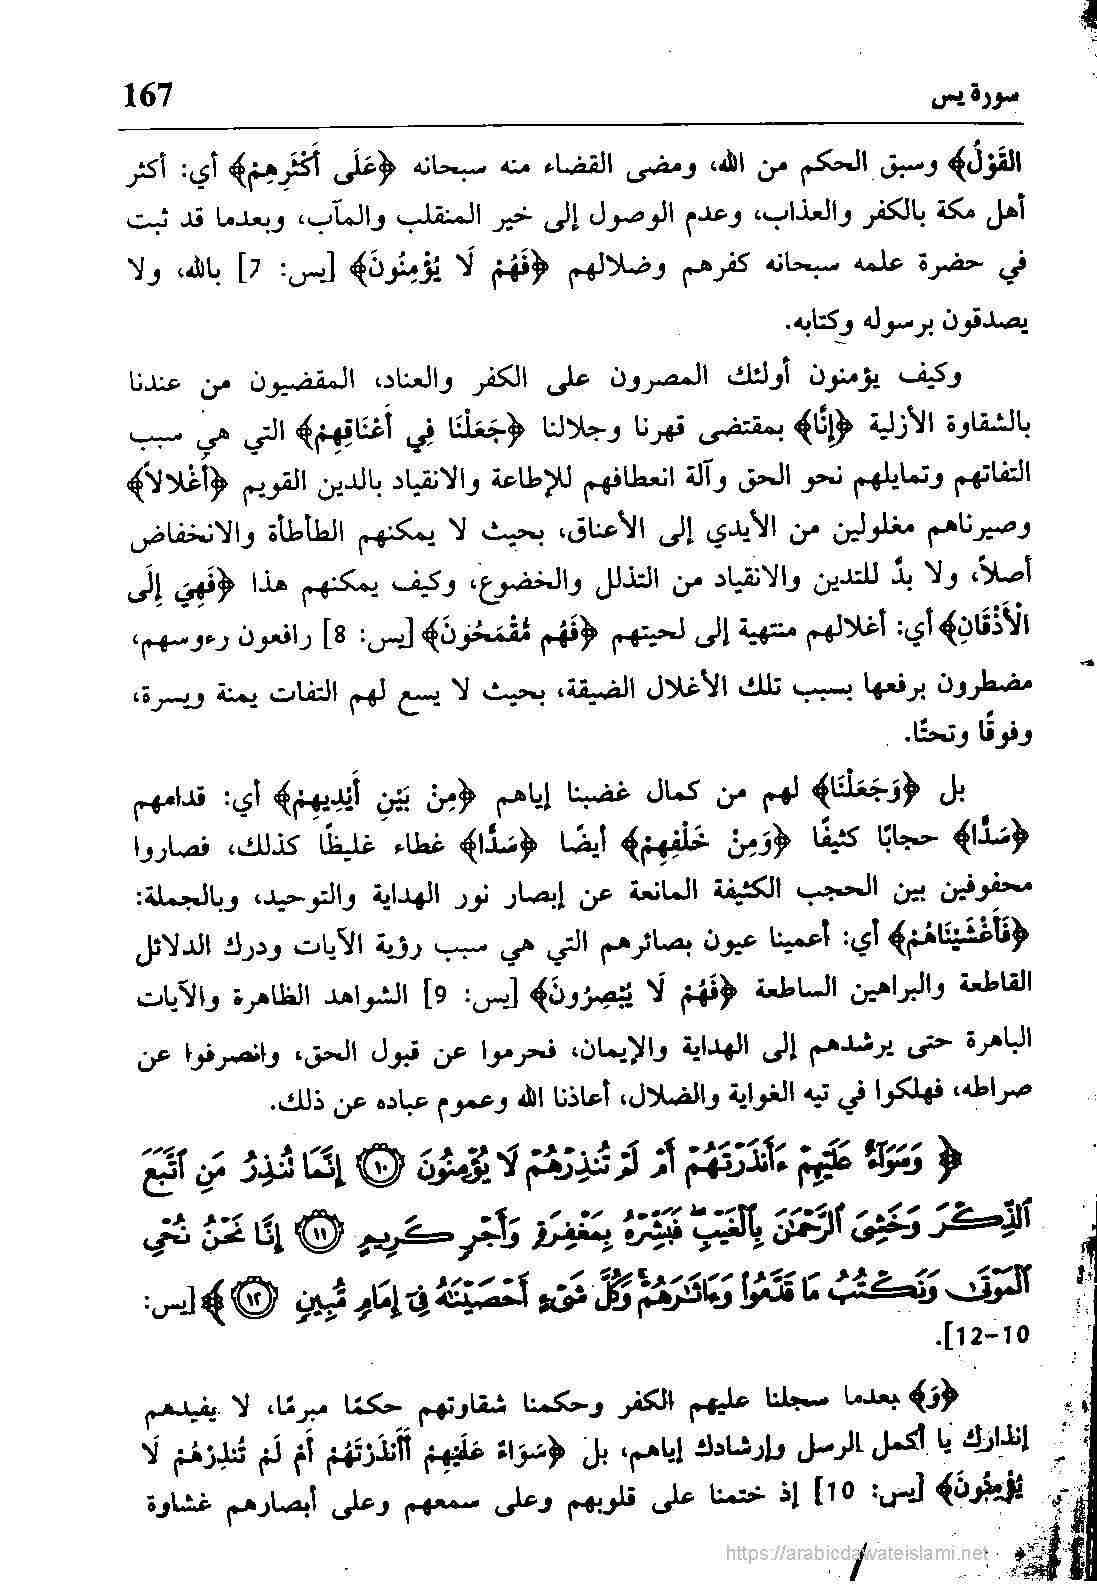 سورة يس
167
القَوْلُ﴾ وسبق الحكم من الله، ومضى القضاء منه سبحانه ﴿عَلَى أَكْثَرِهِمْ﴾ أي: أكثر
أهل مكة بالكفر والعذاب، وعدم الوصول إلى خير المنقلب والمآب، وبعدما قد ثبت
في حضرة علمه سبحانه كفرهم وضلالهم ﴿فَهُمْ لَا يُؤْمِنُونَ﴾ [يس: 7] بالله، ولا
يصدقون برسوله وكتابه.
وكيف يؤمنون أولئك المصرون على الكفر والعناد، المقضيون من عندنا
بالشقاوة الأزلية ﴿إِنَّا﴾ بمقتضى قهرنا وجلالنا ﴿جَعَلْنَا فِي أَعْنَاقِهِمْ﴾ التي هي سبب
التفاتهم وتمايلهم نحو الحق وآلة انعطافهم للإطاعة والانقياد بالدين القويم ﴿أَغْلالاً﴾
وصيرناهم مغلولين من الأيدي إلى الأعناق، بحيث لا يمكنهم الطأطأة والانخفاض
أصلاً، ولا بدَّ للتدين والانقياد من التذلل والخضوع، وكيف يمكنهم هذا ﴿فَهِيَ إِلَى
الْأَذْقَانِ﴾ أي: أغلالهم منتهية إلى لحيتهم ﴿فَهُم مُّقْمَحُونَ﴾ [يس: 8] رافعون رءوسهم،
مضطرون برفعها بسبب تلك الأغلال الضيقة، بحيث لا يسع لهم التفات يمنة ويسرة،
وفوقًا وتحتًا.
بل ﴿وَجَعَلْنَا﴾ لهم من كمال غضبنا إياهم ﴿مِنْ بَيْنِ أَيْدِيهِمْ﴾ أي: قدامهم
﴿سَدًّا﴾ حجابًا كثيفًا ﴿وَمِنْ خَلْفِهِمْ﴾ أيضًا ﴿سَدًّا﴾ غطاء غليظًا كذلك، فصاروا
محفوفين بين الحجب الكثيفة المانعة عن إبصار نور الهداية والتوحيد، وبالجملة:
﴿فَأَغْشَيْنَاهُمْ﴾ أي: أعمينا عيون بصائرهم التي هي سبب رؤية الآيات ودرك الدلائل
القاطعة والبراهين الساطعة ﴿فَهُمْ لَا يُبْصِرُونَ﴾ [يس: 9] الشواهد الظاهرة والآيات
الباهرة حتى يرشدهم إلى الهداية والإيمان، فحرموا عن قبول الحق، وانصرفوا عن
صراطه، فهلكوا في تيه الغواية والضلال، أعاذنا الله وعموم عباده عن ذلك.
﴿ وَسَوَآءٌ عَلَيْهِمْ ءَأَنذَرْتَهُمْ أَمْ لَمْ تُنذِرْهُمْ لَا يُؤْمِنُونَ ۝١٠ إِنَّمَا تُنذِرُ مَنِ ٱتَّبَعَ
ٱلذِّكْرَ وَخَشِىَ ٱلرَّحْمَٰنَ بِٱلْغَيْبِ ۖ فَبَشِّرْهُ بِمَغْفِرَةٍ وَأَجْرٍ كَرِيمٍ ۝١١ إِنَّا نَحْنُ نُحْىِ
ٱلْمَوْتَىٰ وَنَكْتُبُ مَا قَدَّمُوا۟ وَءَاثَٰرَهُمْ ۚ وَكُلَّ شَىْءٍ أَحْصَيْنَٰهُ فِىٓ إِمَامٍ مُّبِينٍ ۝١٢ ﴾ [يس:
10-12].
﴿وَ﴾ بعدما سجلنا عليهم الكفر وحكمنا شقاوتهم حكمًا مبرمًا، لا يفيدهم
إنذارك يا أكمل الرسل وإرشادك إياهم، بل ﴿سَوَاءٌ عَلَيْهِمْ أَأَنذَرْتَهُمْ أَمْ لَمْ تُنذِرْهُمْ لَا
يُؤْمِنُونَ﴾ [يس: 10] إذ ختمنا على قلوبهم وعلى سمعهم وعلى أبصارهم غشاوة
https://arabicdawateislami.net